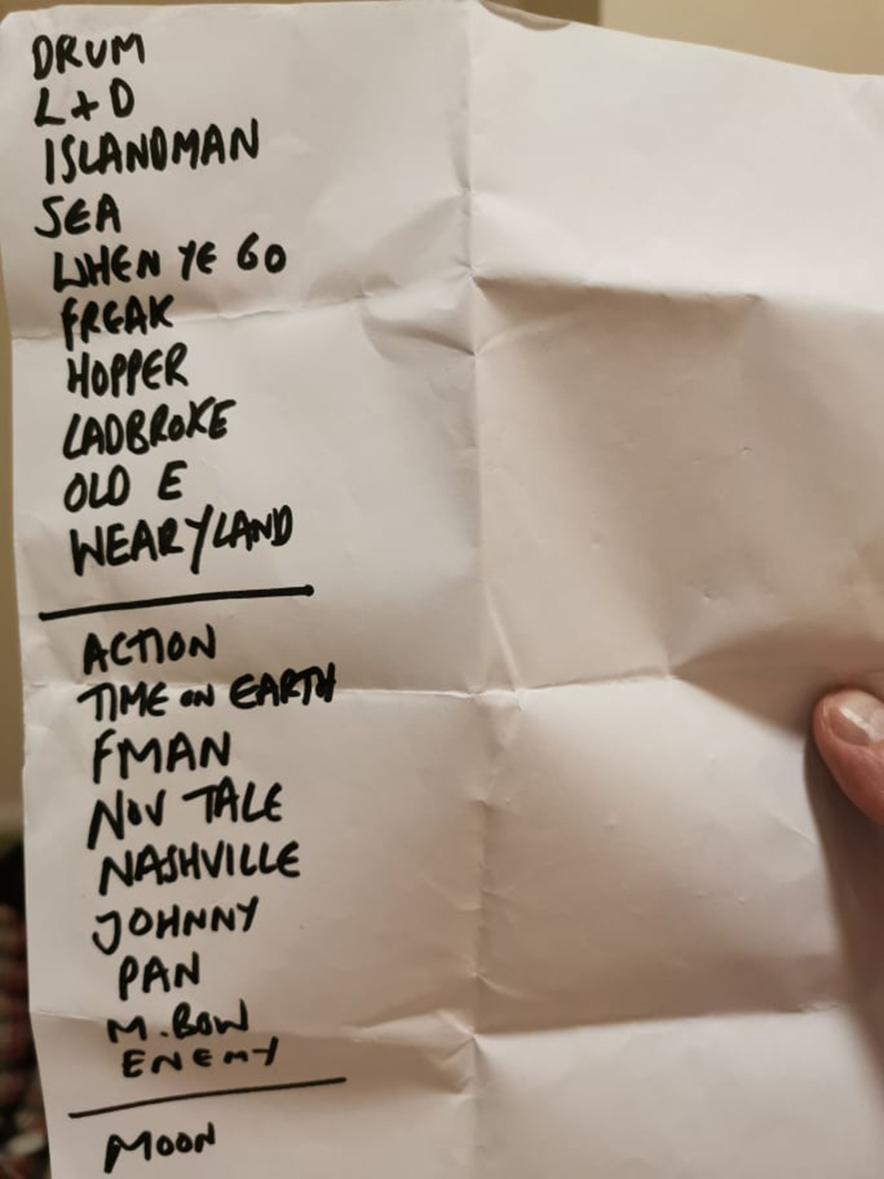 DRUM
L+D
ISLANDMAN
SEA
WHEN YE GO
FREAK
HOPPER
LADBROKE
OLD E
WEARYLAND
ACTION
TIME ON EARTH
FMAN
NOV TALE
NASHVILLE
JOHNNY
PAN
M.BOW
ENEMY
MOON